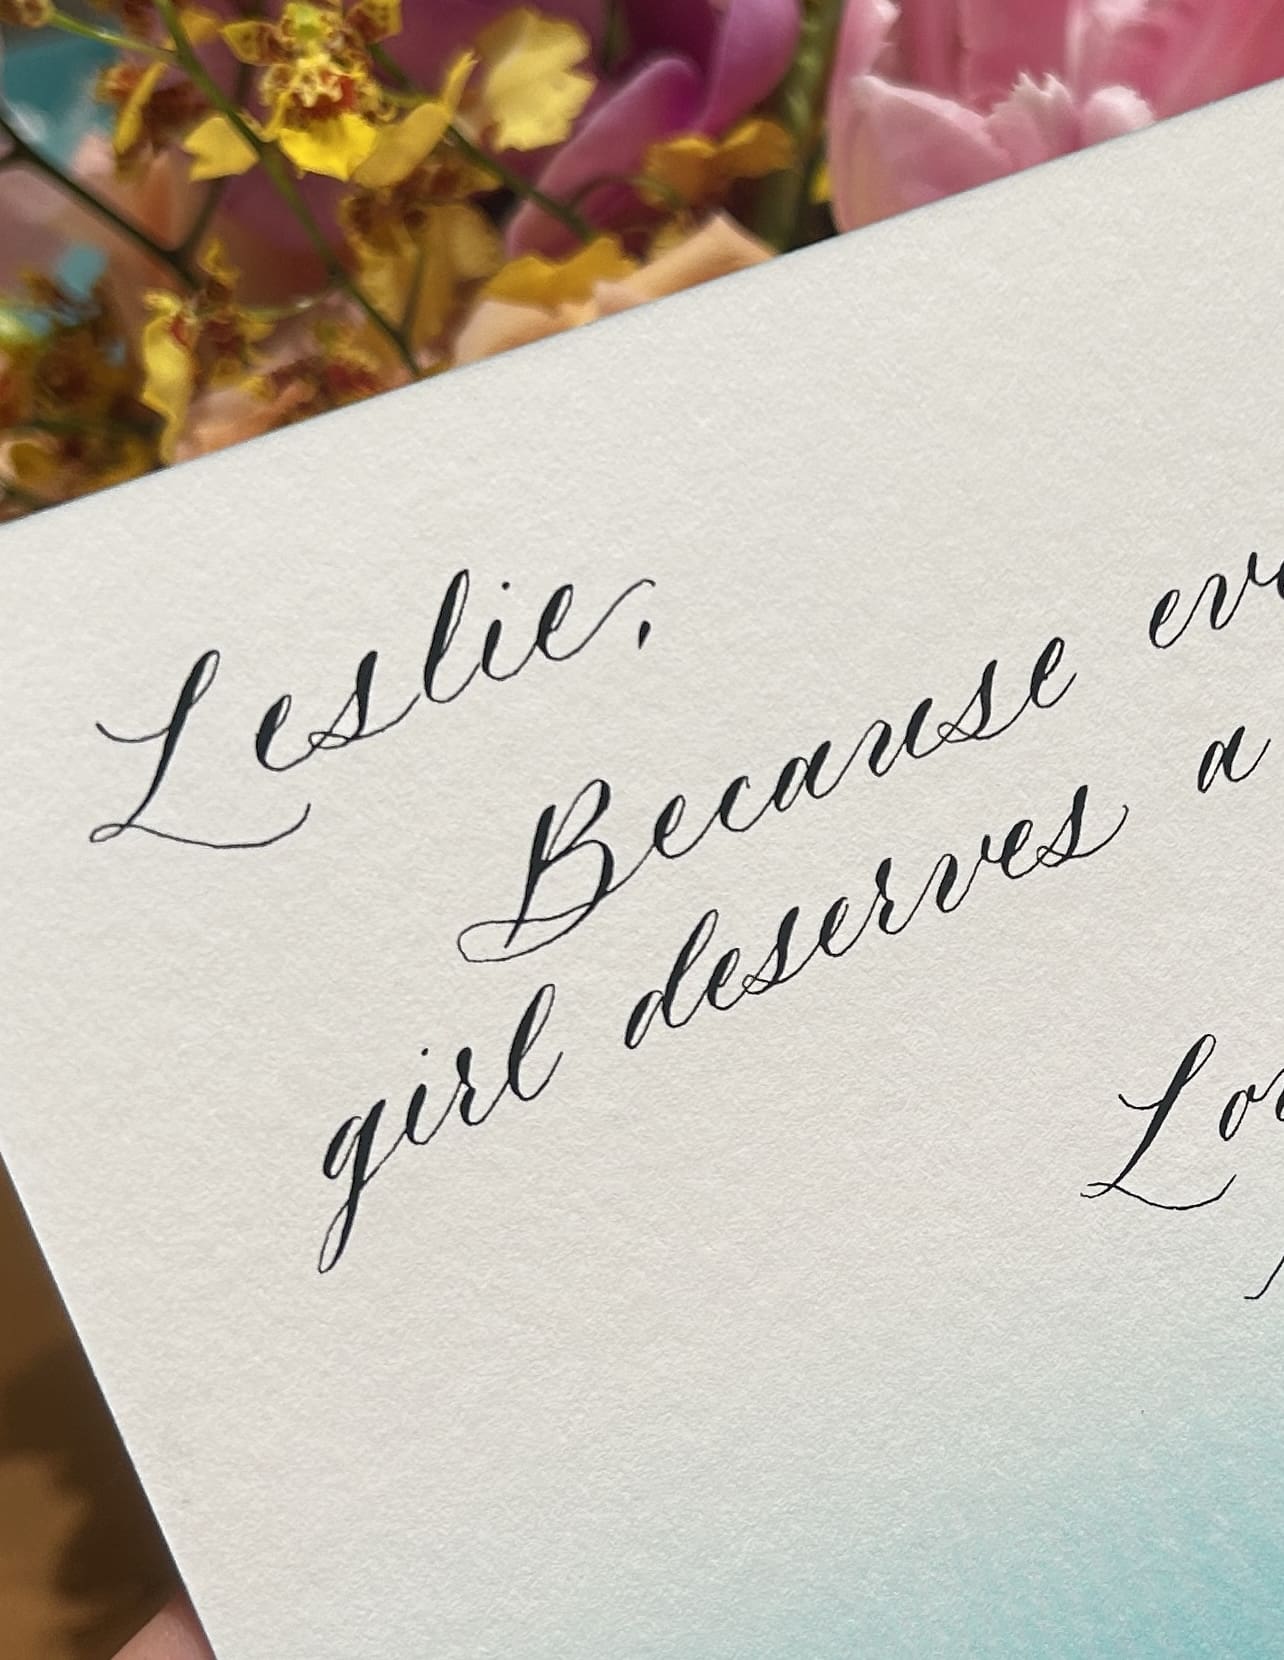 Leslie,
Because
girl deserves a